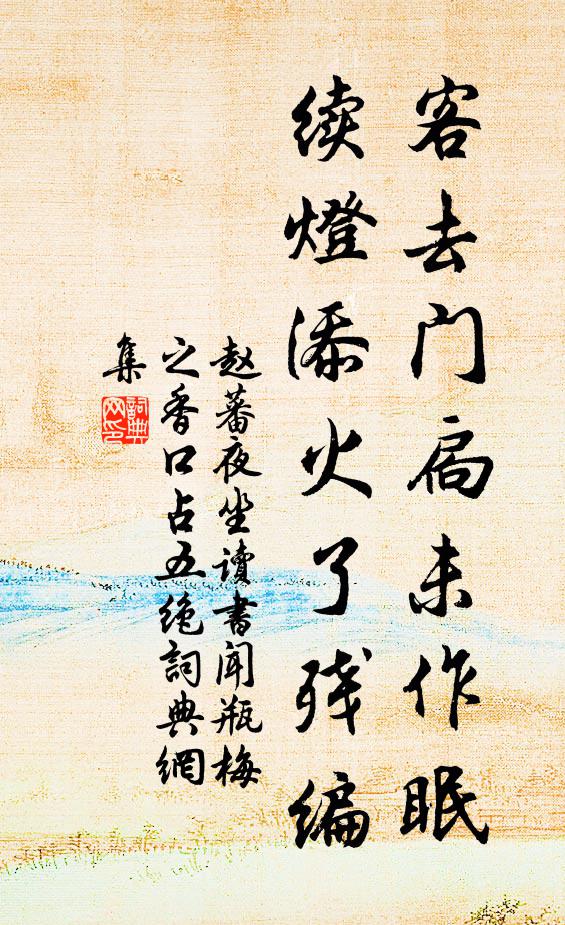 客去门扃未作眠
续燈添火了残编
赵蕃夜坐读書闻瓶梅
之香口占五绝詞典網
集
詞典
网印